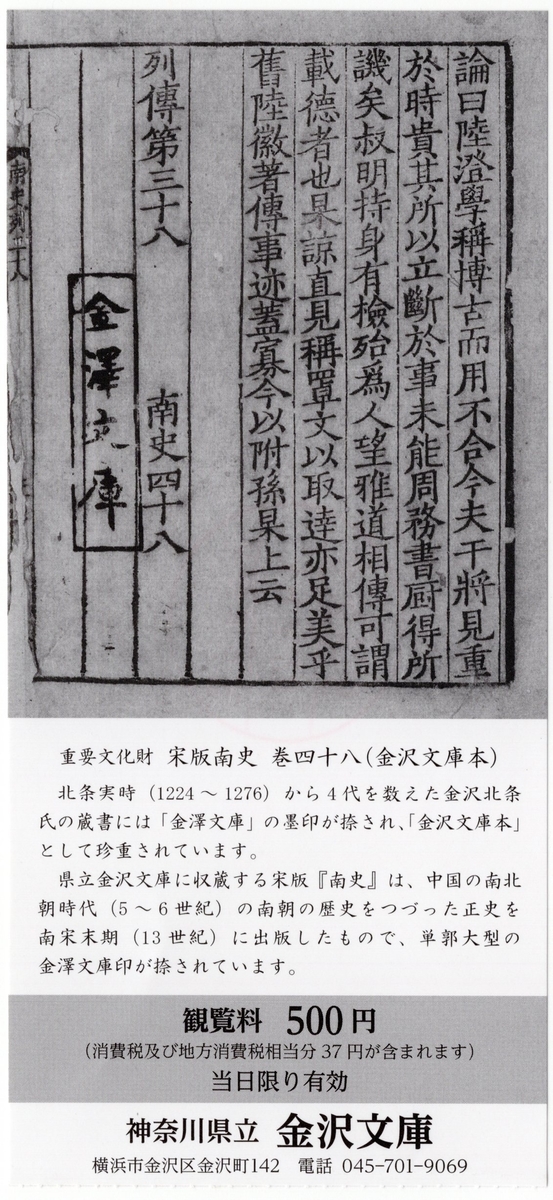 論曰陸澄學稱博古而用不合今夫干將見重
於時貴其所以立斷於事未能周務書厨得所
譏矣叔明持身有檢殆爲人望雅道相傳可謂
載德者也杲諒直見稱單文以取達亦足美乎
舊陸徽著傳事迹蓋寡今以附孫杲上云
列傳第三十八 南史四十八
金澤文庫
南史列三十八
重要文化財 宋版南史 巻四十八(金沢文庫本)
北条実時(1224～1276)から4代を数えた金沢北条
氏の蔵書には「金澤文庫」の墨印が捺され、「金沢文庫本」
として珍重されています。
県立金沢文庫に収蔵する宋版『南史』は、中国の南北
朝時代(5～6世紀)の南朝の歴史をつづった正史を
南宋末期(13世紀)に出版したもので、単郭大型の
金澤文庫印が捺されています。
観覧料 500円
(消費税及び地方消費税相当分37円が含まれます)
当日限り有効
神奈川県立 金沢文庫
横浜市金沢区金沢町142 電話 045-701-9069